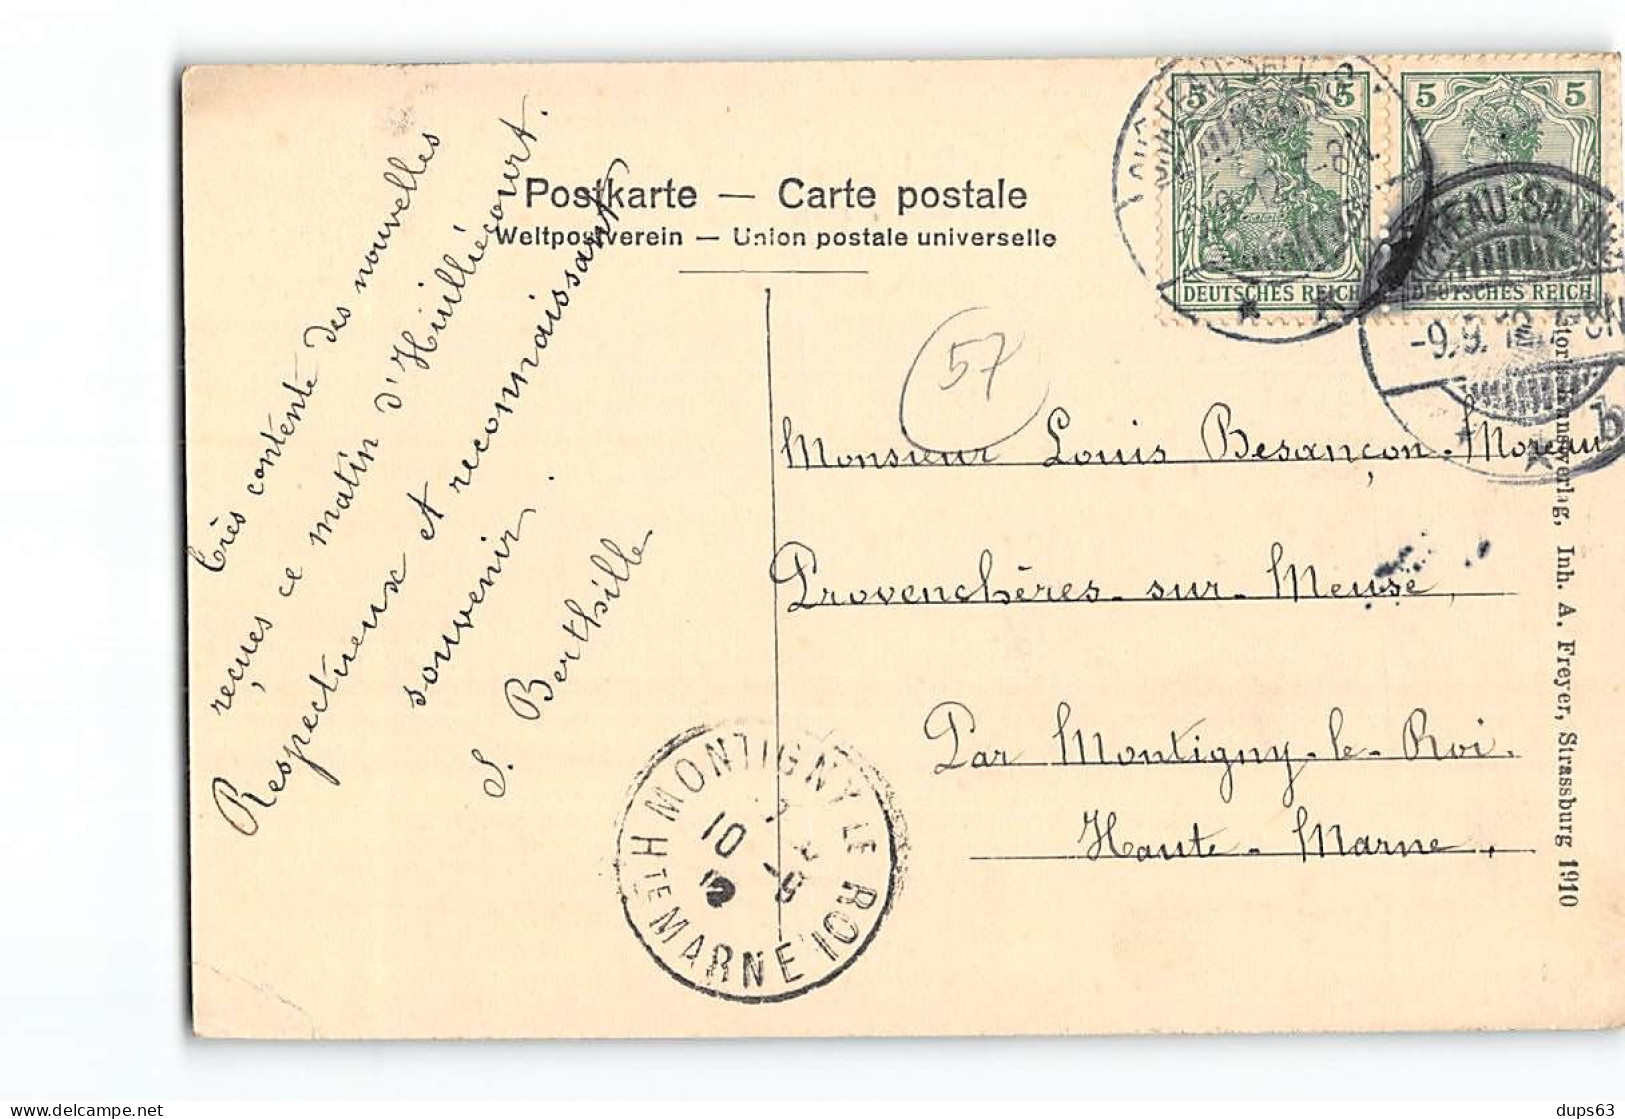 Postkarte — Carte postale
Weltpostverein — Union postale universelle
Très contente des nouvelles
reçues ce matin d'Huilliécourt.
Respectueux et reconnaissant
souvenir.
S. Berthille
57
5 5
DEUTSCHES REICH
5 5
DEUTSCHES REICH
CHÂTEAU-SALINS
-9.9.12
b
Monsieur Louis Besançon-Moreau
Provenchères-sur-Meuse,
Par Montigny-le-Roi.
Haute-Marne.
MONTIGNY LE ROI
10 -9
HTE MARNE
Inh. A. Freyer, Strassburg 1910
dups63